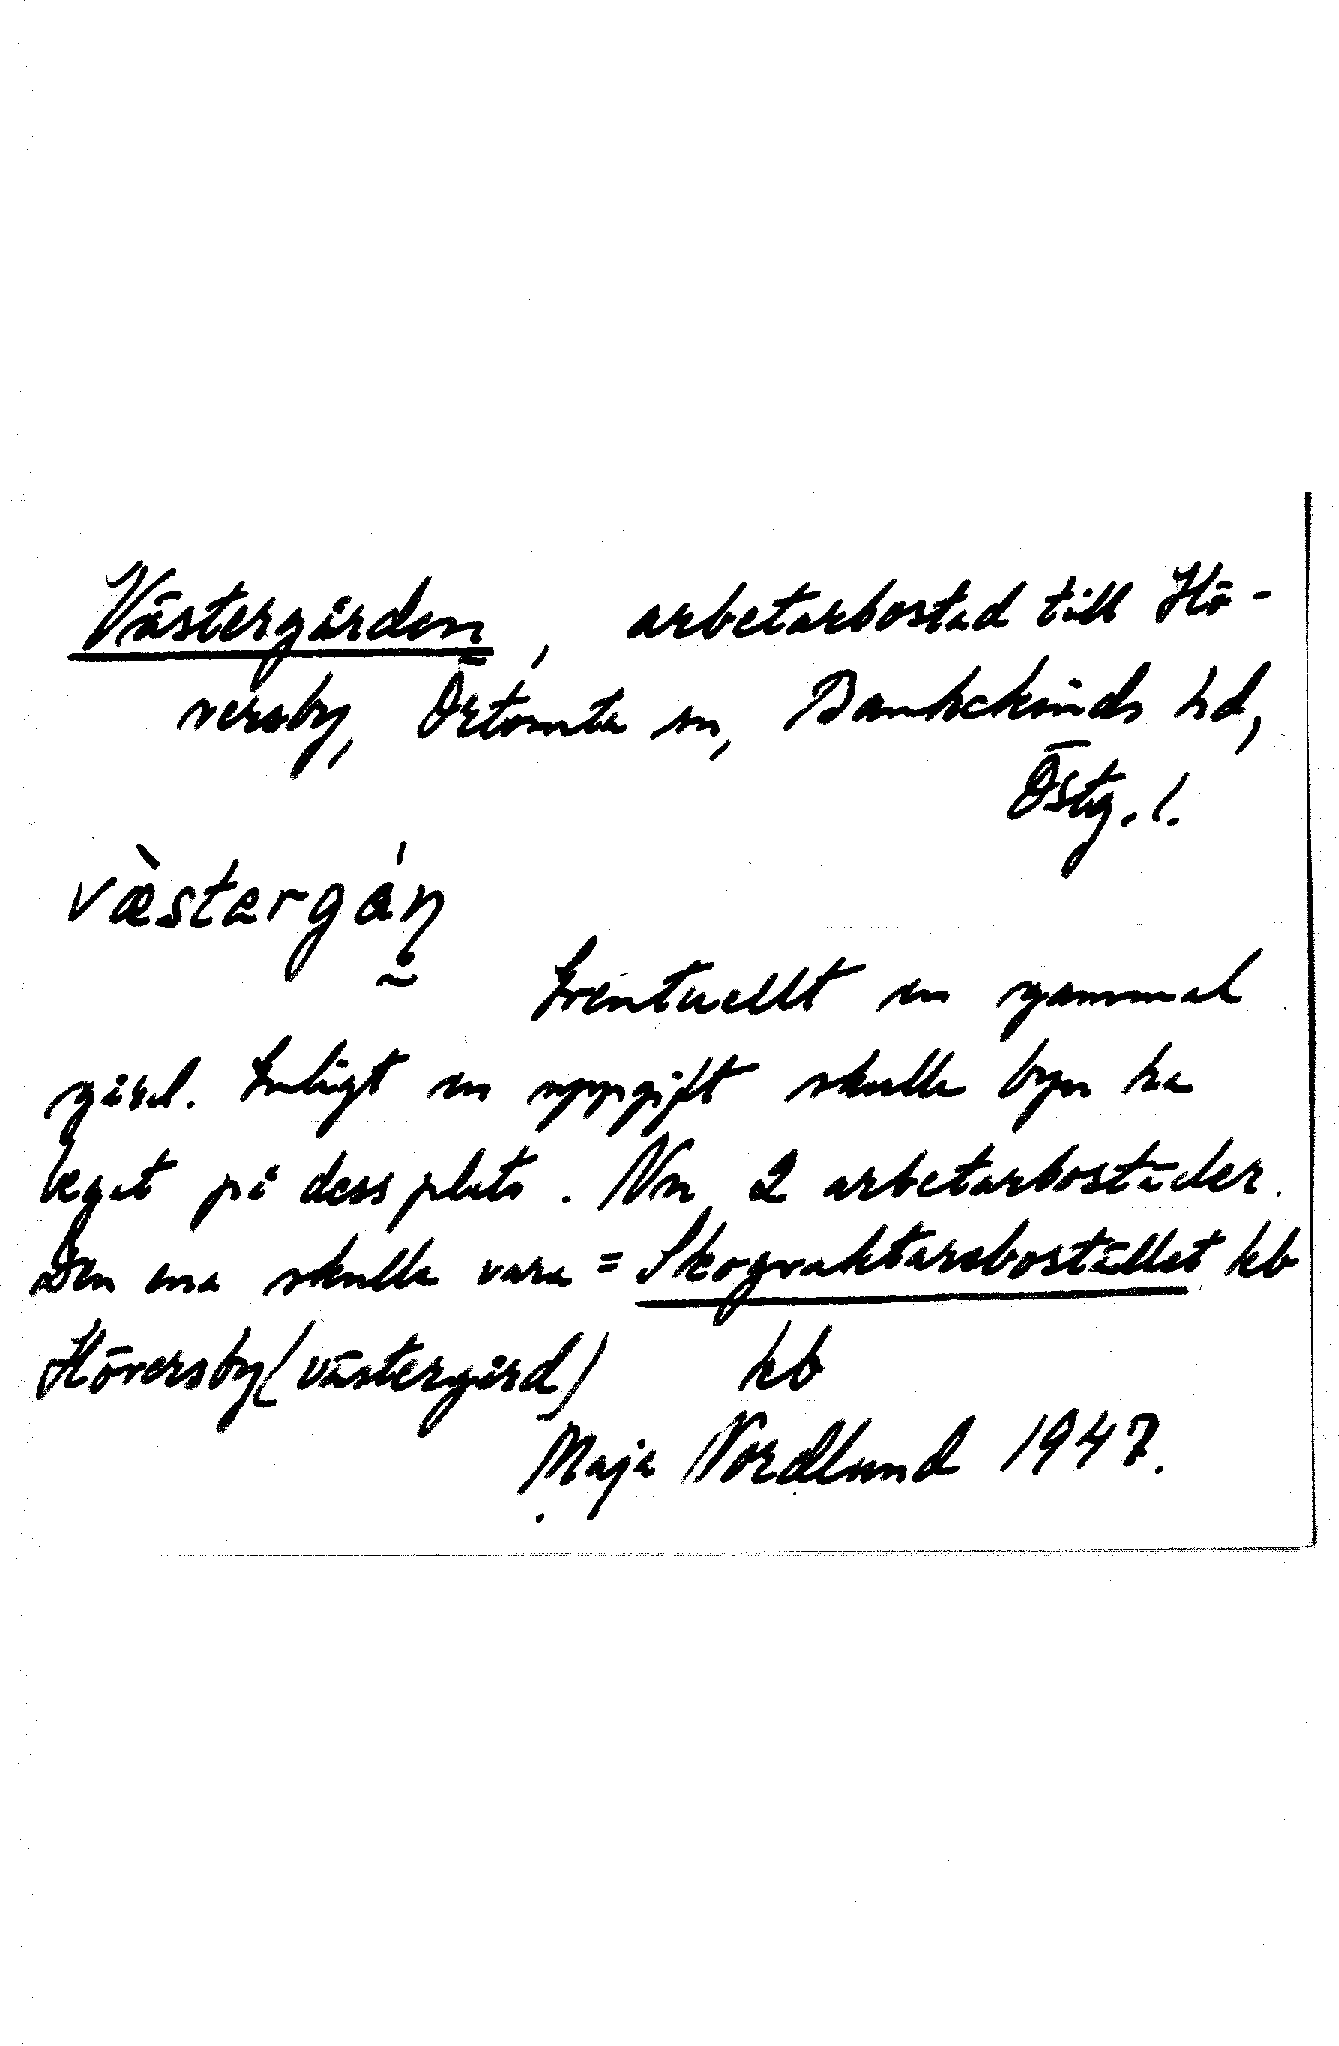 Västergården, arbetarbostad till Hö-
versby, Örtomta sn, Bankekinds hd,
Östg. l.
væ̀stərgáṇ
Eventuellt en gammal
gård. Enligt en uppgift skulle byn ha
legat på dess plats. Nu 2 arbetarbostäder.
Den ena skulle vara = Skogvaktarebostället kb
Höversby (västergård) kb
Maja Nordlund 1947.